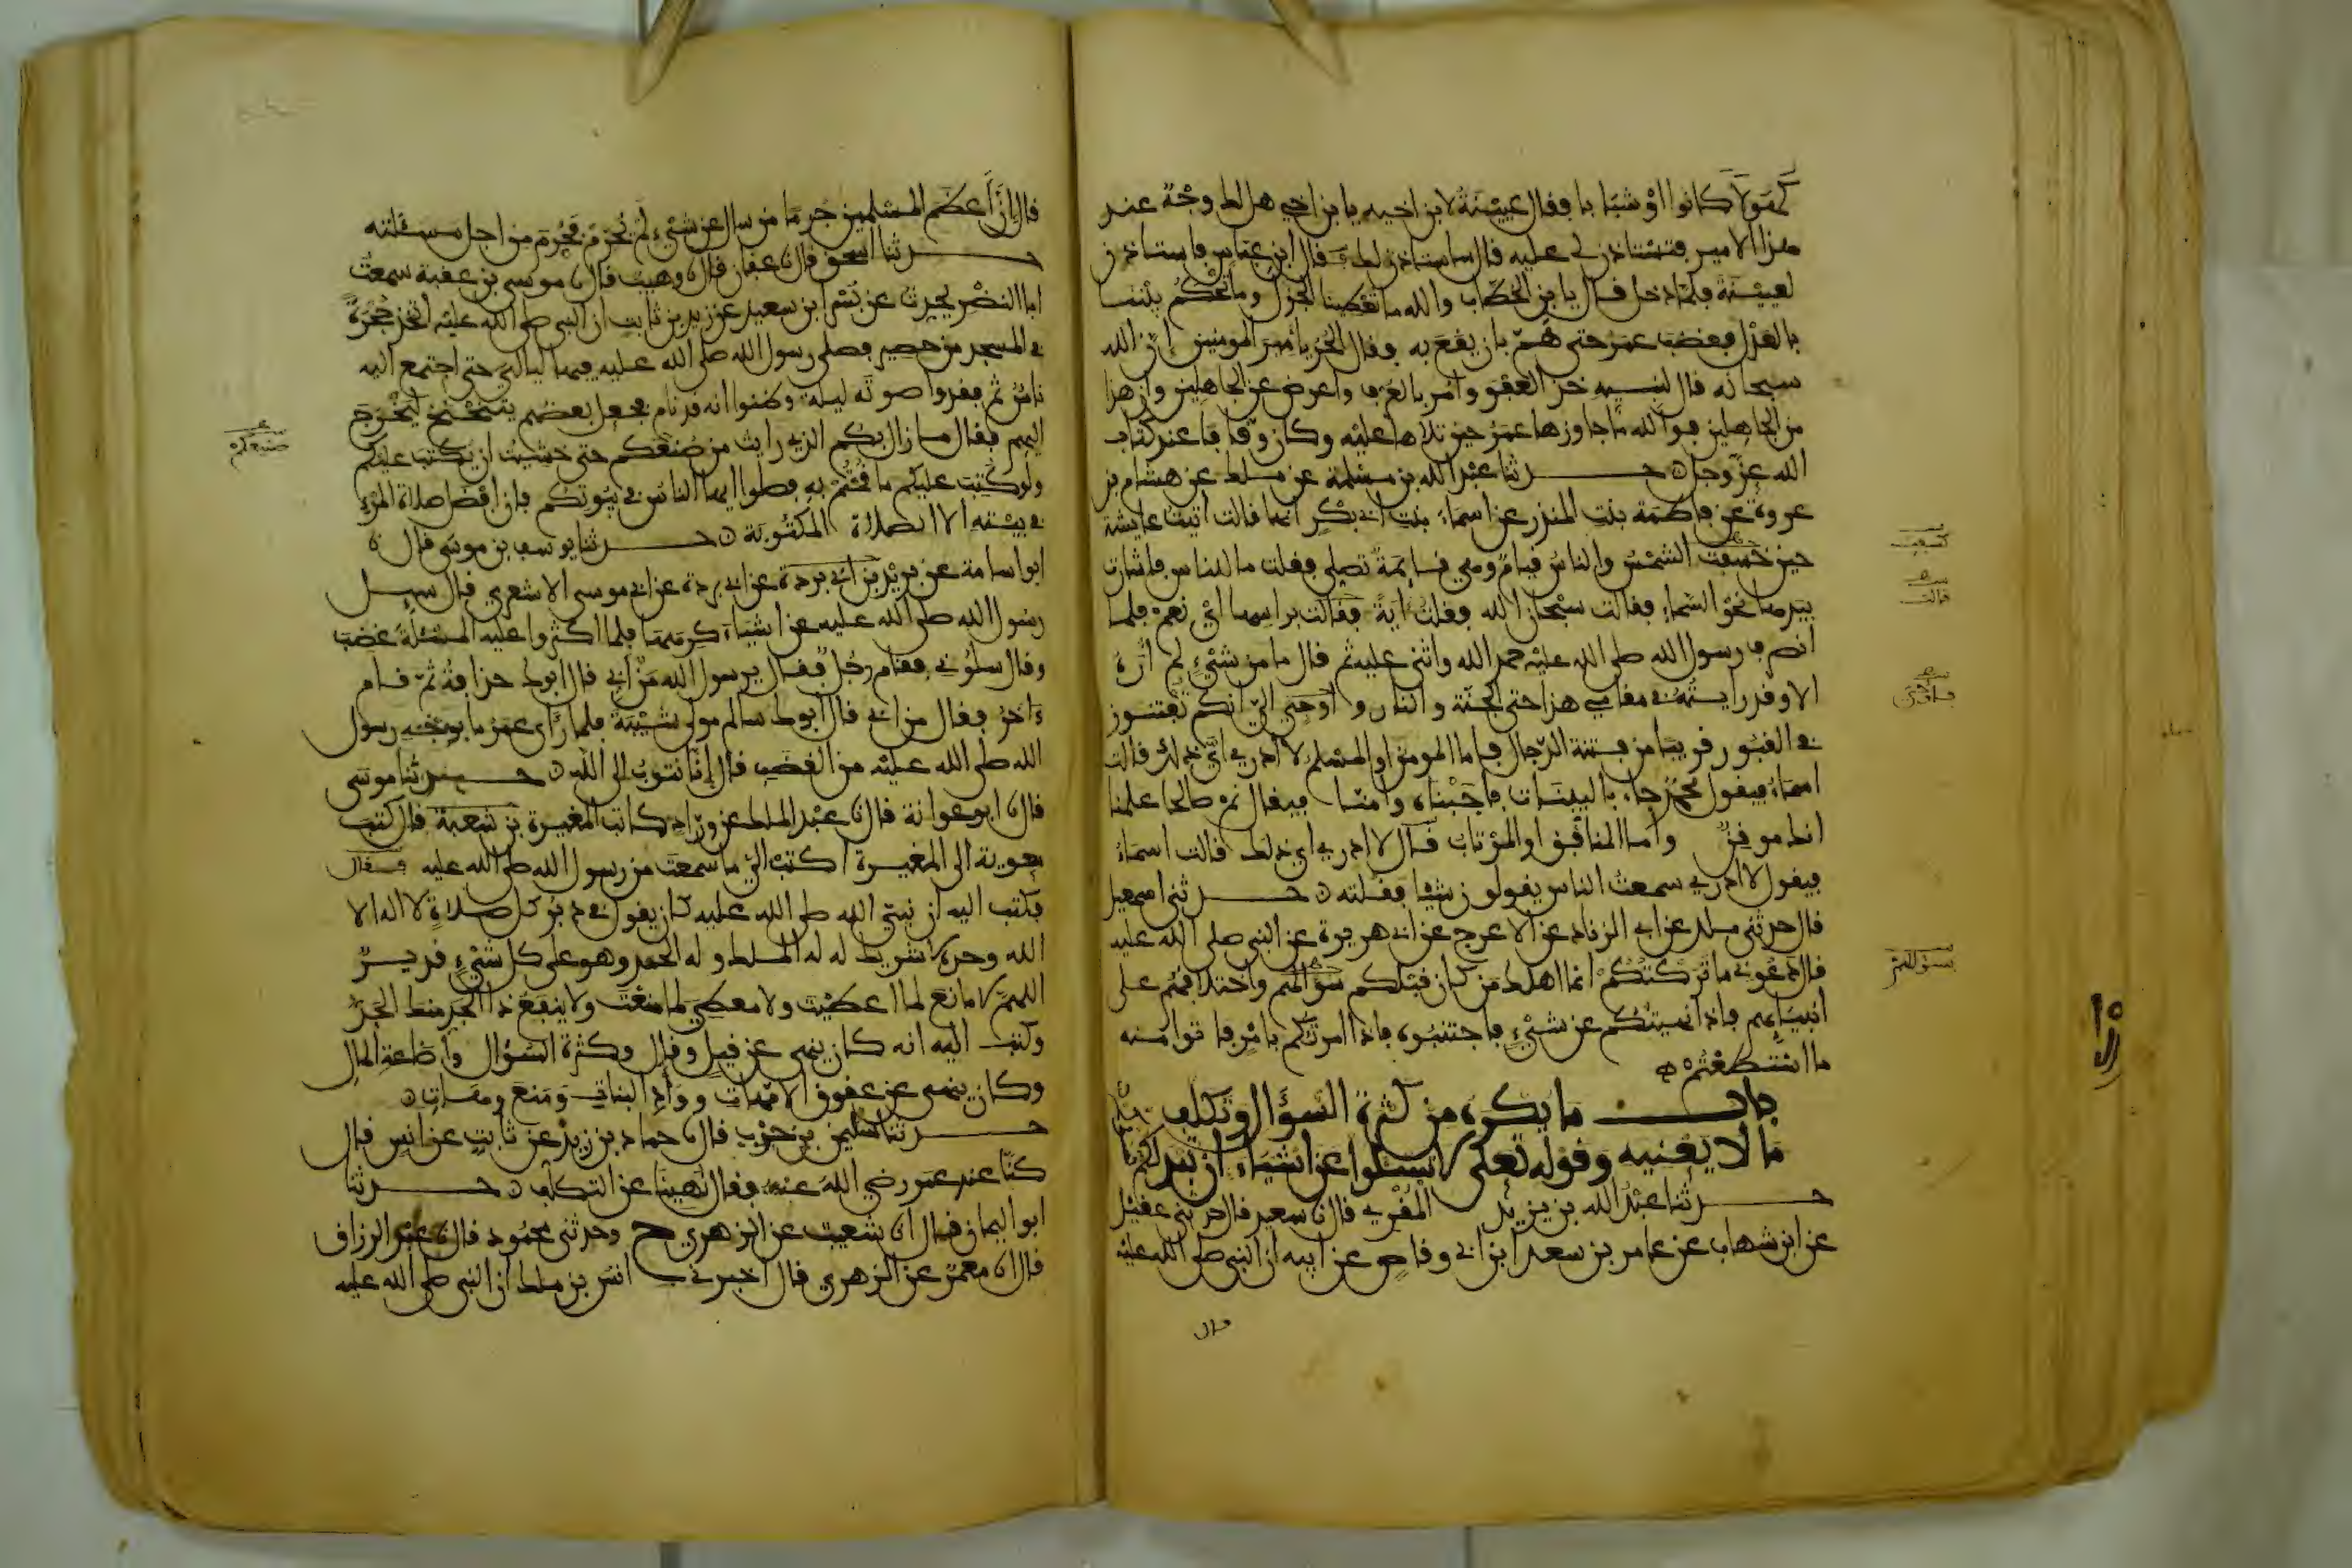 كهولا كانوا او شبابا فقال عيينة لابن اخيه يابن اخي هل لك وجه عند
هذا الامير فتستاذن لي عليه قال ساستاذن لك عليه قال ابن عباس فاستاذن
لعيينة فلما دخل قال يا بن الخطاب والله ما تعطينا الجزل وما تحكم بيننا
بالعدل فغضب عمر حتى هم بان يقع به فقال الحر يا امير المومنين ان الله
سبحانه قال لنبيه خذ العفو وامر بالعرف واعرض عن الجاهلين وان هذا
من الجاهلين فوالله ما جاوزها عمر حين تلاها عليه وكان وقافا عند كتاب
الله عز وجل حدثنا عبد الله بن مسلمة عن ملك عن هشام بن
عروة عن فاطمة بنت المنذر عن اسماء بنت ابي بكر انها قالت اتيت عايشة
حين خسفت الشمس والناس قيام وهي قائمة تصلي فقلت ما للناس فاشارت
بيدها نحو السماء فقالت سبحان الله فقلت اية فقالت براسها اي نعم فلما
انصرف رسول الله صلى الله عليه حمد الله واثنى عليه ثم قال ما من شيء لم اره
الا وقد رايته في مقامي هذا حتى الجنة والنار واوحي الي انكم تفتنون
في القبور قريبا من فتنة الدجال فاما المومن او المسلم لا ادري اي ذلك قالت
اسماء فيقول محمد جاء بالبينات فاجبناه وامنا فيقال نم صالحا علمنا
انك موقن واما المنافق او المرتاب قال لا ادري اي ذلك قالت اسماء
فيقول لا ادري سمعت الناس يقولون شيا فقلته حدثني اسمعيل
قال حدثني ملك عن ابي الزناد عن الاعرج عن ابي هريرة عن النبي صلى الله عليه
قال دعوني ما تركتكم انما اهلك من كان قبلكم سؤالهم واختلافهم على
انبيائهم فاذا نهيتكم عن شيء فاجتنبوه فاذا امرتكم بامر فاتوا منه
ما استطعتم
باب ما يكره من كثرة السؤال وتكلف
ما لا يعنيه وقوله تعلى لا تسئلوا عن اشياء ان تبد لكم
حدثنا عبد الله بن يزيد المقري قال نا سعيد قال حدثني عقيل
عن ابن شهاب عن عامر بن سعد ابن ابي وقاص عن ابيه ان النبي صلى الله عليه
قال
كسفت
قالت
قال ان اعظم المسلمين جرما من سال عن شيء لم يحرم فحرم من اجل مسئلته
حدثنا اسحق قال نا عفان قال نا وهيب قال نا موسى بن عقبة سمعت
ابا النضر يحدث عن بسر ابن سعيد عن زيد بن ثابت ان النبي صلى الله عليه اتخذ حجرة
في المسجد من حصير فصلى رسول الله صلى الله عليه فيها ليالي حتى اجتمع اليه
ناس ثم فقدوا صوته ليلة وظنوا انه قد نام فجعل بعضهم يتنحنح ليخرج
اليهم فقال ما زال بكم الذي رايت من صنعكم حتى خشيت ان يكتب عليكم
ولو كتب عليكم ما قمتم به فصلوا ايها الناس في بيوتكم فان افضل صلاة المرء
في بيته الا الصلاة المكتوبة حدثنا يوسف بن موسى قال نا
ابو اسامة عن بريد بن ابي بردة عن ابي بردة عن ابي موسى الاشعري قال سيل
رسول الله صلى الله عليه عن اشياء كرهها فلما اكثروا عليه المسئلة غضب
وقال سلوني فقام رجل فقال يرسول الله من ابي قال ابوك حذافة ثم قام
ءاخر فقال من ابي قال ابوك سالم مولى شيبة فلما رأى عمر ما بوجه رسول
الله صلى الله عليه من الغضب قال انا نتوب الى الله حدثنا موسى
قال نا ابو عوانة قال نا عبد الملك عن وراد كاتب المغيرة بن شعبة قال كتب
معوية الى المغيرة اكتب الي ما سمعت من رسول الله صلى الله عليه فقال
فكتب اليه ان نبي الله صلى الله عليه كان يقول في دبر كل صلاة لا اله الا
الله وحده لا شريك له له الملك وله الحمد وهو على كل شيء قدير
اللهم لا مانع لما اعطيت ولا معطي لما منعت ولا ينفع ذا الجد منك الجد
وكتب اليه انه كان ينهى عن قيل وقال وكثرة السؤال واضاعة المال
وكان ينهى عن عقوق الامهات وواد البنات ومنع وهات
حدثنا سليمن بن حرب قال نا حماد بن زيد عن ثابت عن انس قال
كنا عند عمر رضي الله عنه فقال نهينا عن التكلف حدثنا
ابو اليمان قال انا شعيب عن الزهري ح وحدثني محمود قال نا عبد الرزاق
قال انا معمر عن الزهري قال اخبرني انس بن ملك ان النبي صلى الله عليه
صنيعكم